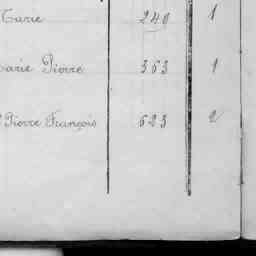 Marie 240 1
Marie Pierre 363 1
Pierre François 623 2